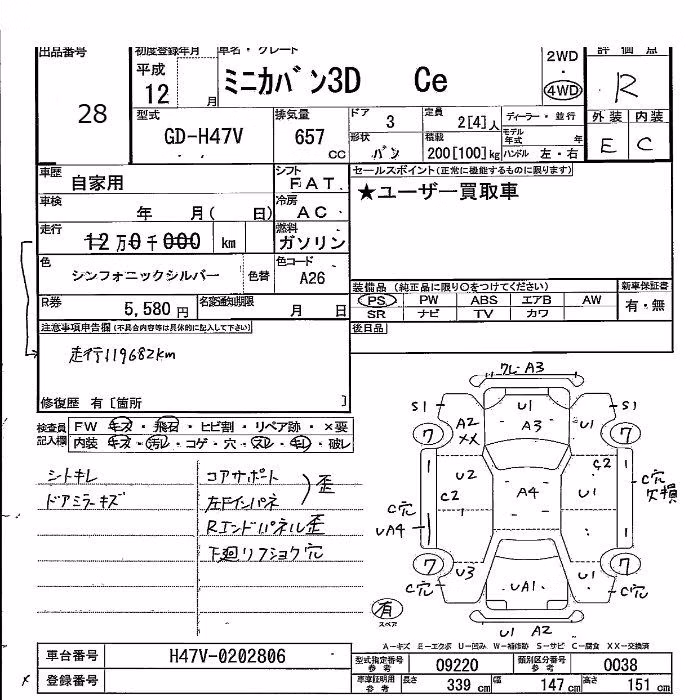 出品番号 28
初度登録年月 平成 12 月
車名・グレード ミニカバン3D Ce
2WD・4WD
評価点 R
外装 内装
E C
型式 GD-H47V
排気量 657 CC
ドア 3
形状 バン
定員 2[4]人
積載 200[100]kg
ディーラー・並行
モデル年式 年
ハンドル 左・右
車歴 自家用
シフト FAT
セールスポイント(正常に機能するものに限ります)
★ユーザー買取車
車検 年 月( 日)
冷房 AC
走行 12万0千000 km
燃料 ガソリン
色 シンフォニックシルバー 色替
色コード A26
装備品 (純正品に限り○をつけてください)
PS PW ABS エアB AW
SR ナビ TV カワ
新車保証書
有・無
R券 5,580円
名変通知期限 月 日
後日品
注意事項申告欄(不具合内容等は具体的に記入して下さい)
走行119682km
修復歴 有[箇所 ]
検査員記入欄
FW キズ・飛石・ヒビ割・リペア跡・×要
内装 キズ・汚レ・コゲ・穴・スレ・キレ・破レ
シートキレ
ドアミラーキズ
コアサポート
左Fインパネ
)歪
Rエンドパネル歪
下廻リフショク穴
フレ A3
S1 U1 S1
A2 XX A3 U1
7 7
U2 C2 C2
A4 U1
C穴 UA4
C穴欠損
7 7
U3 UA1 U1
C穴 C穴
有 スペア
U1 A2
A-キズ E-エクボ U-凹み W-補修跡 S-サビ C-腐食 XX-交換済
車台番号 H47V-0202806
登録番号
型式指定番号 参考 09220
類別区分番号 参考 0038
車庫証明用 参考 長さ 339 cm 幅 147 cm 高さ 151 cm